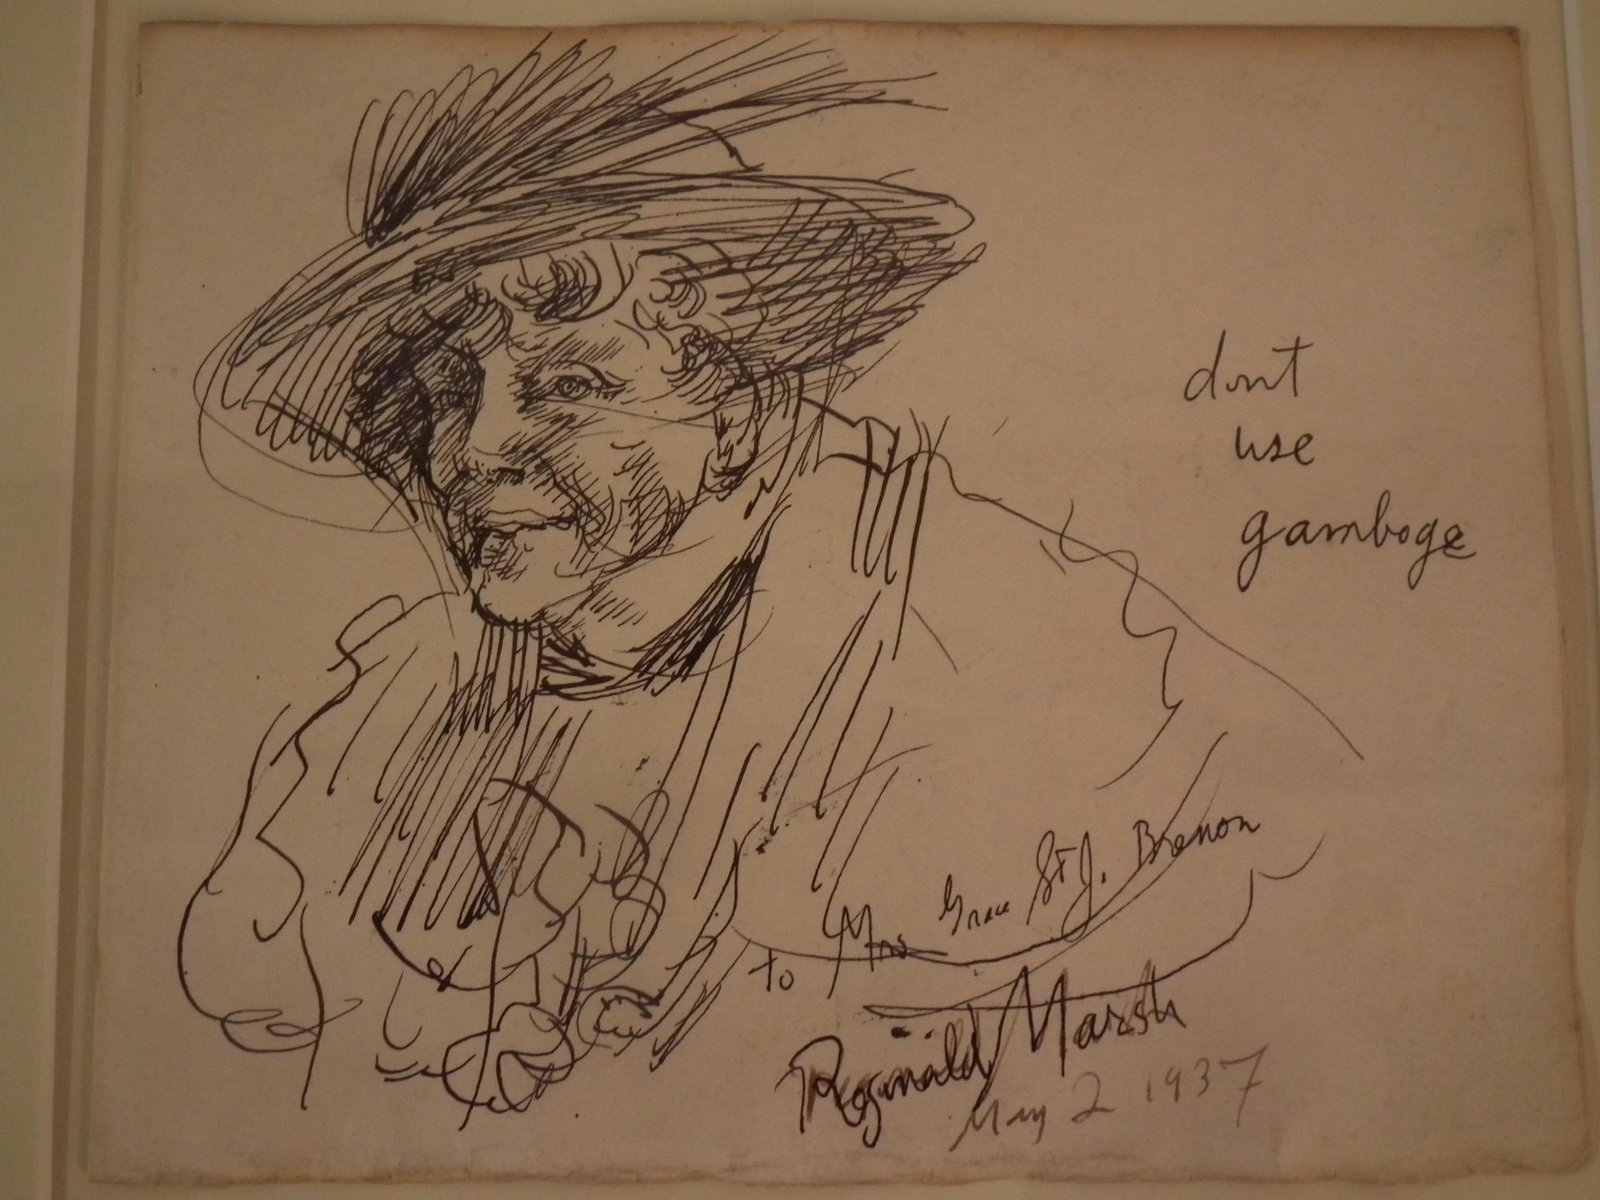 dont
use
gamboge
to Mrs Grace St J. Brenon
Reginald Marsh
May 2 1937